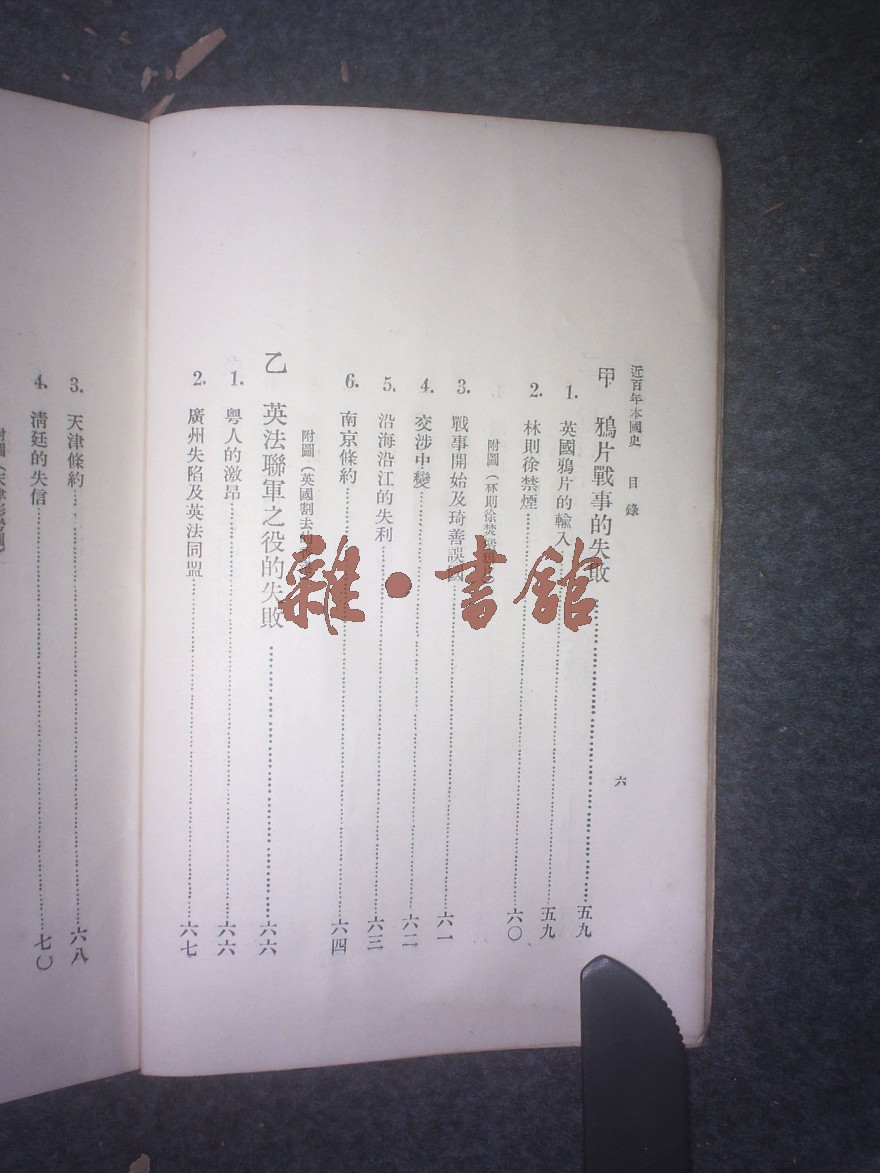 近百年本國史 目錄
六
甲 鴉片戰事的失敗 五九
1. 英國鴉片的輸入 五九
2. 林則徐禁煙 六〇
附圖(林則徐焚
3. 戰事開始及琦善誤國 六一
4. 交涉中變 六二
5. 沿海沿江的失利 六三
6. 南京條約 六四
附圖(英國割去
乙 英法聯軍之役的失敗 六六
1. 粤人的激昂 六六
2. 廣州失陷及英法同盟 六七
3. 天津條約 六八
4. 淸廷的失信 七〇
雜·書館